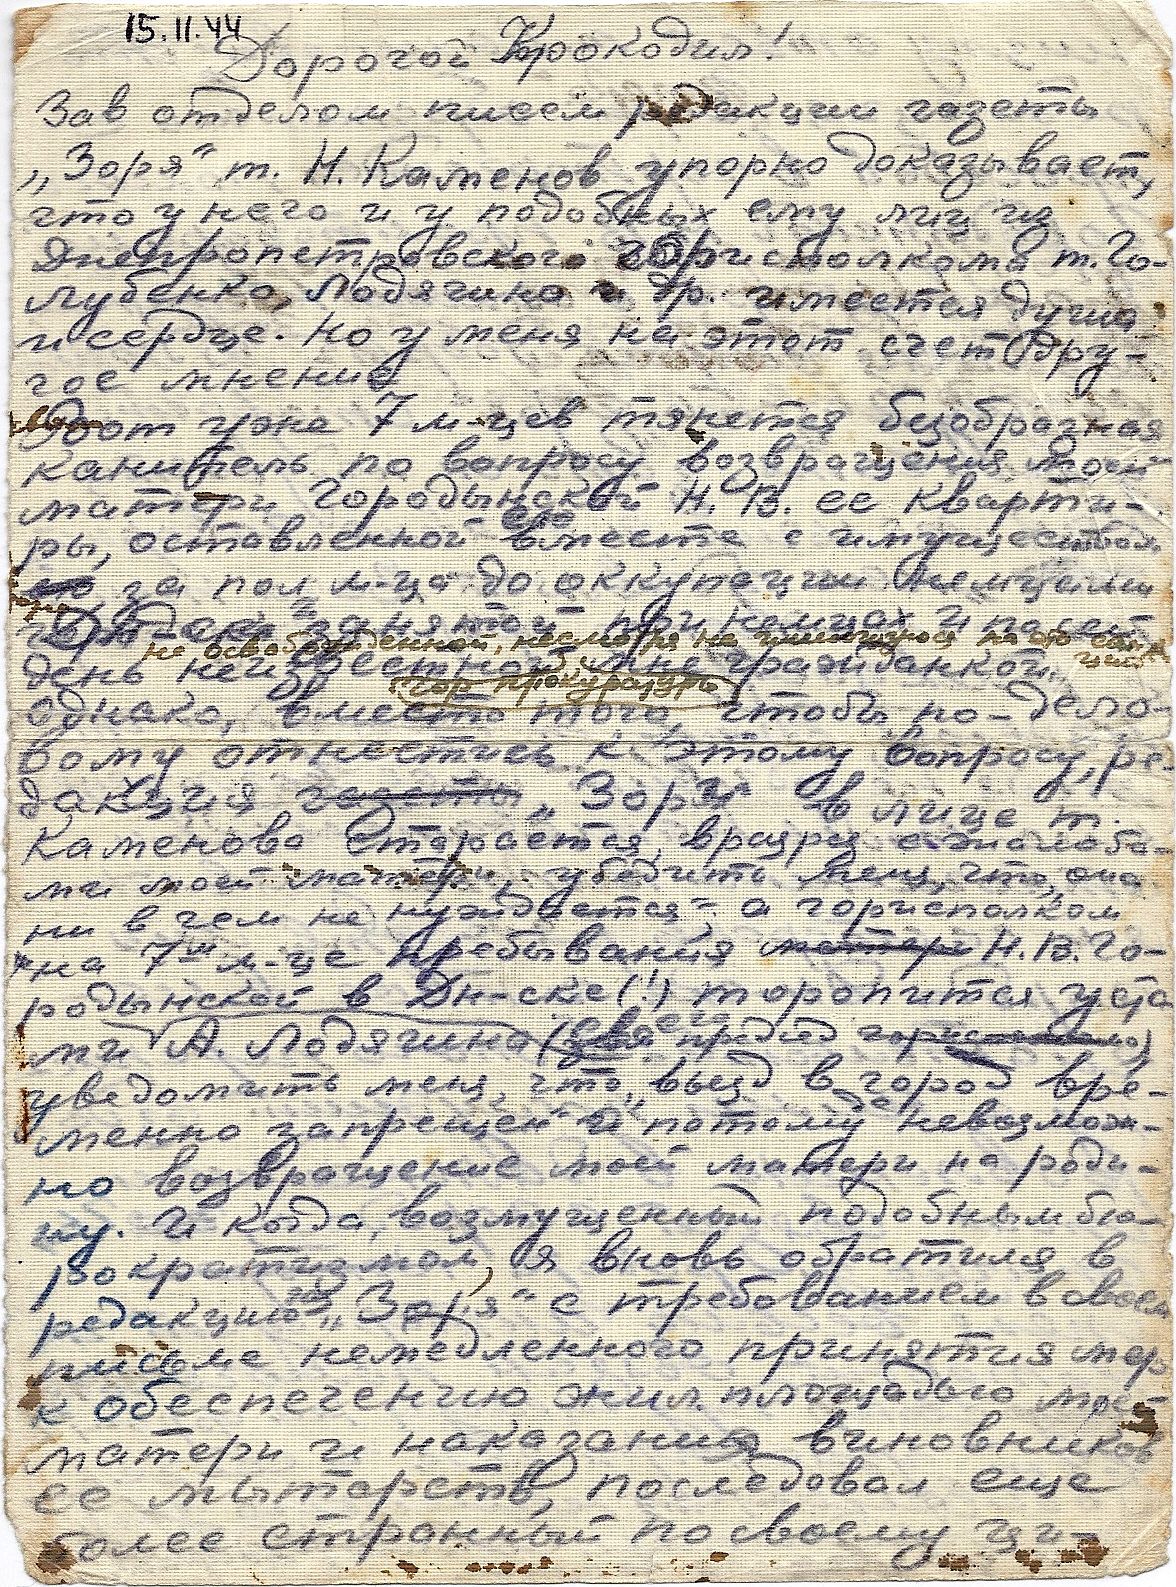 15.II.44
Дорогой Крокодил!
Зав отделом писем редакции газеты
„Заря“ т. Н. Каменов упорно доказывает,
что у него и у подобных ему лиц из
Днепропетровского горисполкома т. Го-
лубенко, Лодягина и др. имеется душа
и сердце. Но у меня на этот счет дру-
гое мнение.
Вот уже 7 м-цев тянется безобразная
канитель по вопросу возвращения моей
матери Городынской Н. В. ее кварти-
ры, оставленной ею вместе с имуществом
за пол м-ца до оккупации немцами
занятой при немцах и по сей
не освобожденной, несмотря на имеющуюся на это
день неизвестной мне гражданкой.
гор прокурату
Однако, вместо того, чтобы по-дело-
вому отнестись к этому вопросу, ре-
дакция газеты „Заря“ в лице т.
Каменова старается, вразрез с жалоба-
ми моей матери, убедить меня, что „она
ни в чем не нуждается“ а горисполком
на 7м м-це пребывания матери Н. В. Го-
родынской в Дн-ске (!) торопится уста
ми А. Лодягина (его председ горисполкома)
уведомить меня, что „въезд в город вре-
менно запрещен“ и „потому“ невозмож-
но возвращение моей матери на роди-
ну. И когда, возмущенный подобным бю-
рократизмом, я вновь обратился в
редакцию „Заря“ с требованием в своем
письме немедленного принятия мер
к обеспечению жил. площадью моей
матери и наказания виновников
ее мытарств, последовал еще
более странный по своему ци-